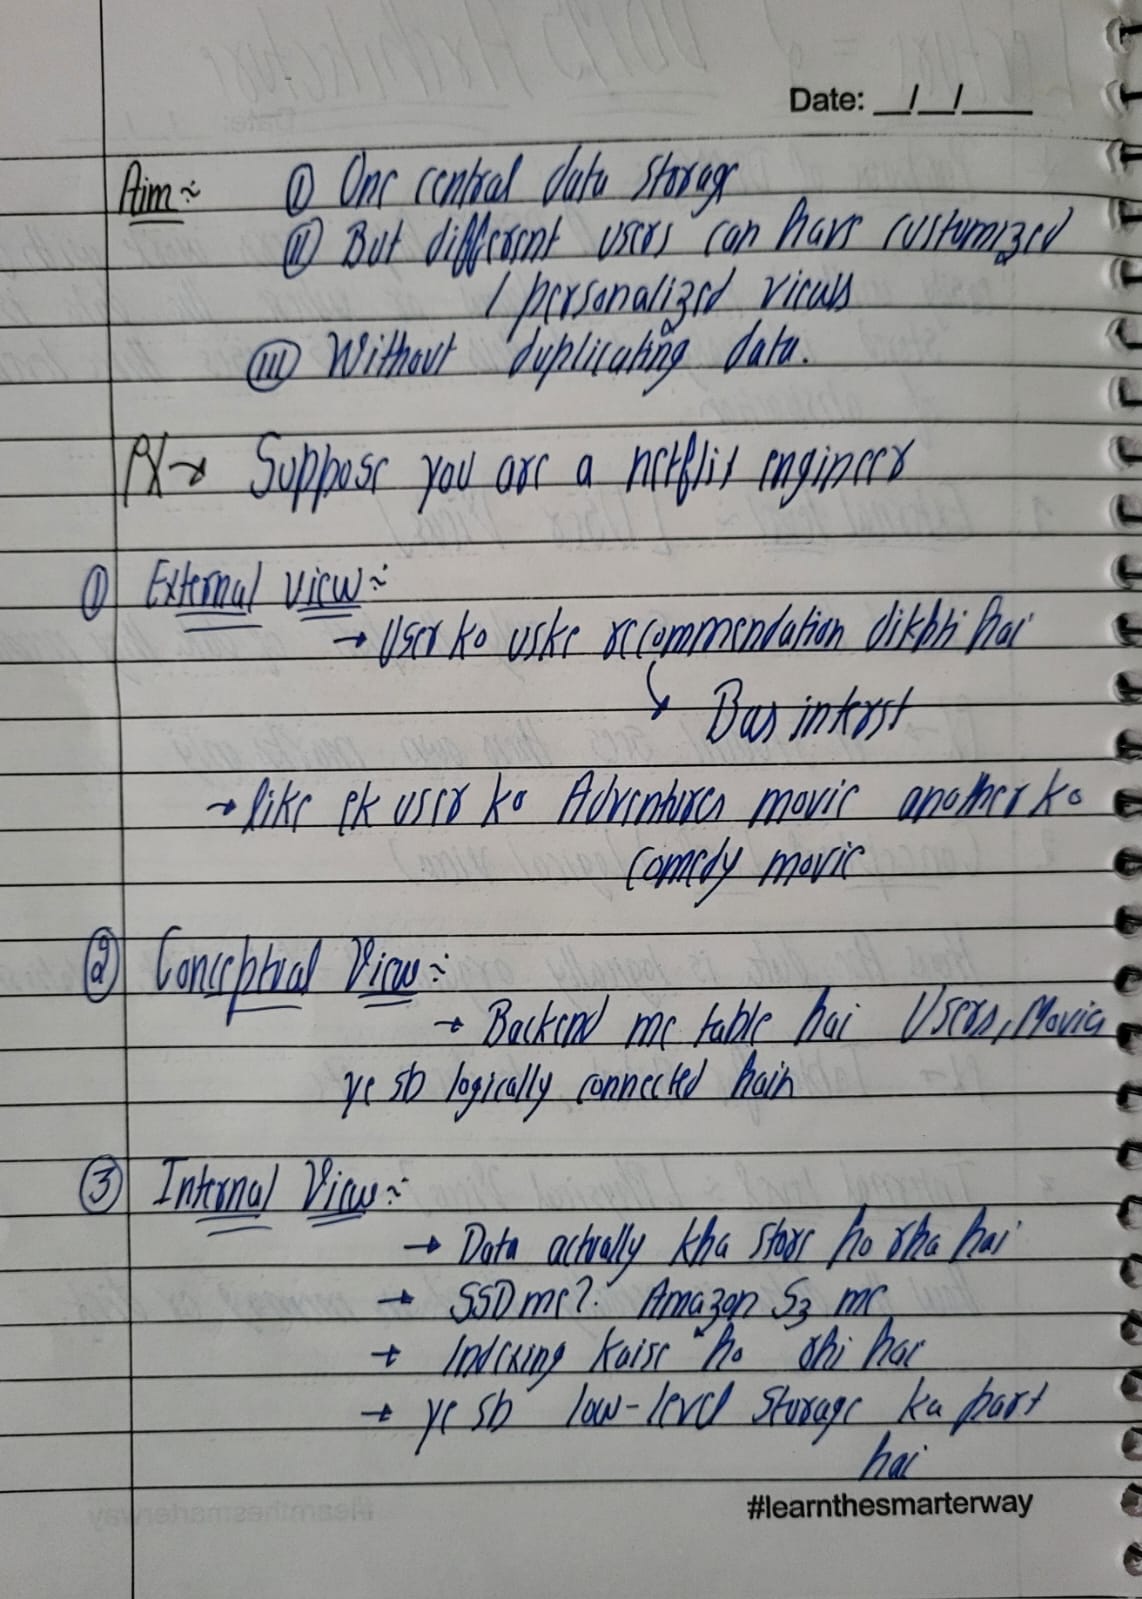 Date: __/__/____
Aim :- (i) One central data storage
(ii) But different users can have customized
/ personalized views
(iii) Without duplicating data.
EX → Suppose you are a netflix engineer
① External view :-
→ User ko uske recommendation dikhti hai
↳ Bas interst
→ like ek user ko Adventures movie another ko
comedy movie
② Conceptual View :-
→ Backend me table hai Users, Movies
ye sb logically connected hain
③ Internal View :-
→ Data actually kha store ho rha hai
→ SSD me? Amazon S3 me
→ Indexing kaise ho rhi hai
→ ye sb low-level storage ka part
hai
#learnthesmarterway